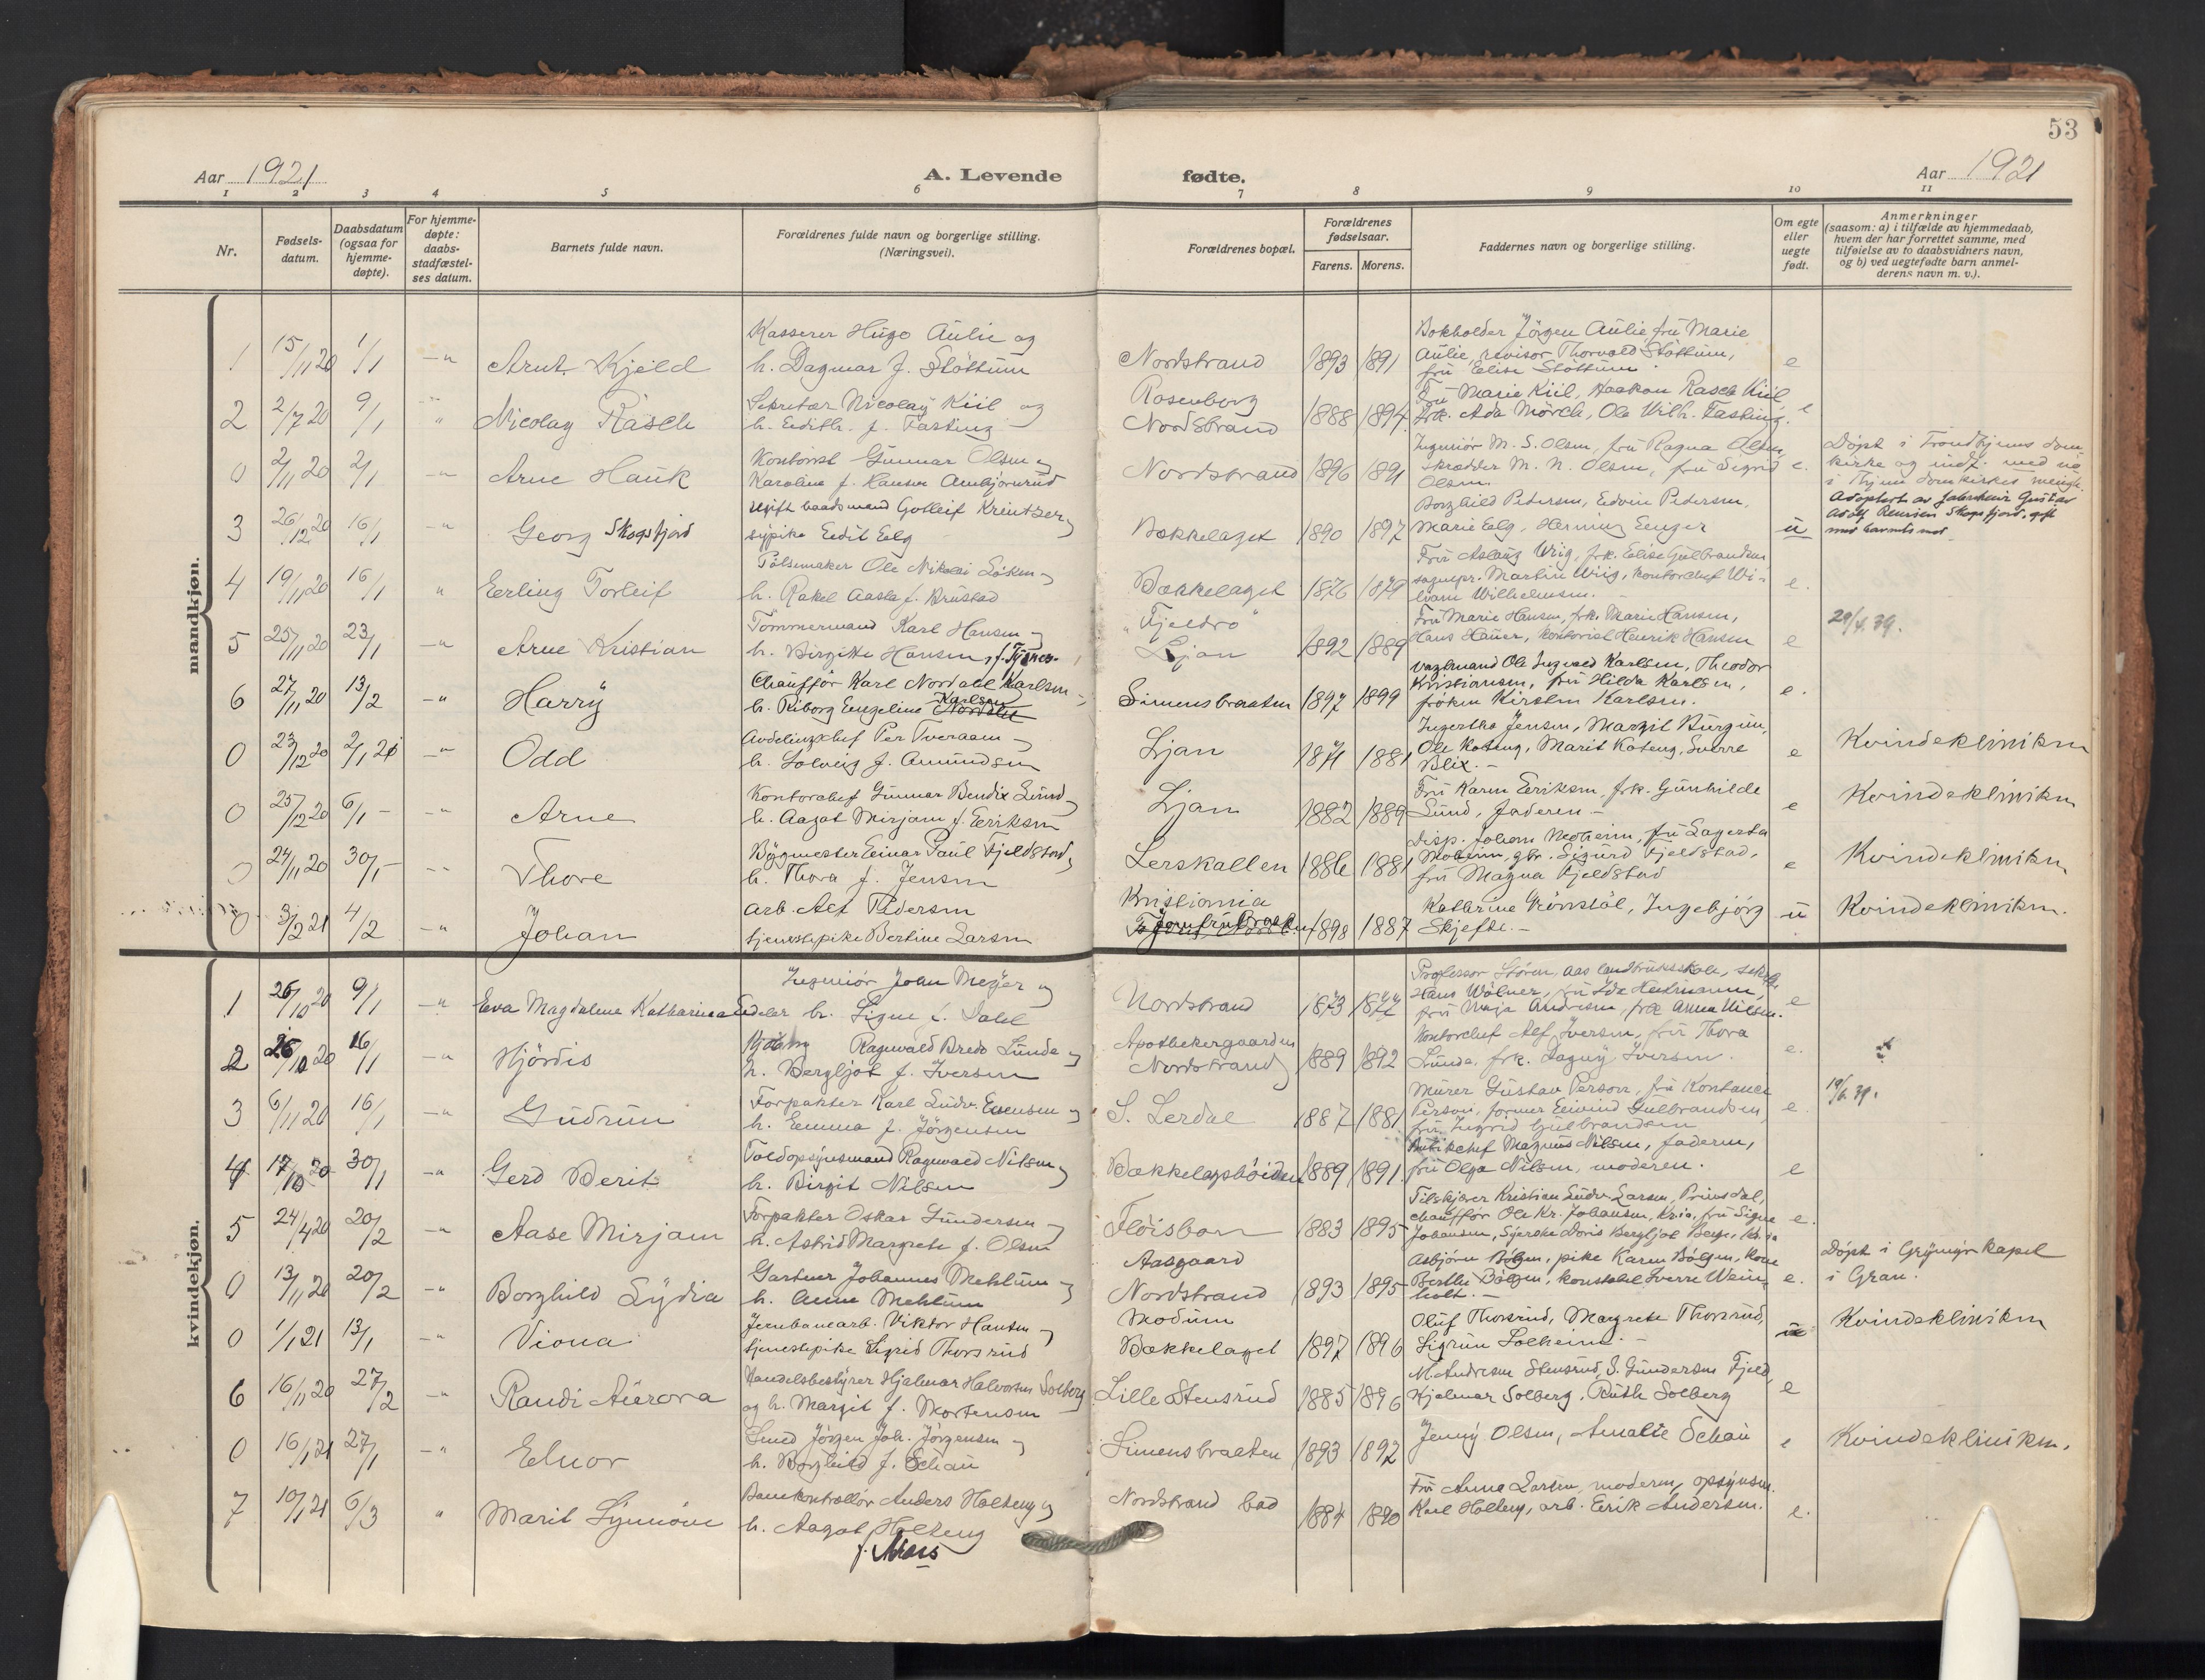 53
Aar 1921
A. Levende
fødte.
Aar 1921
1 2 3 4 5 6 7 8 9 10 11
Nr.
Fødsels-
datum.
Daabsdatum
(ogsaa for
hjemme-
døpte).
For hjemme-
døpte:
daabs-
stadfæstel-
ses datum.
Barnets fulde navn.
Forældrenes fulde navn og borgerlige stilling.
(Næringsvei).
Forældrenes bopæl.
Forældrenes
fødselsaar.
Farens. Morens.
Faddernes navn og borgerlige stilling.
Om egte
eller
uegte
født.
Anmerkninger
(saasom: a) i tilfælde av hjemmedaab,
hvem der har forrettet samme, med
tilføielse av to daabsvidners navn,
og b) ved uegtefødte barn anmel-
derens navn m. v.).
mandkjøn.
Kasserer Hugo Aulie og
Bokholder Jörgen Aulie, fru Marie
1 15/11 20 1/1 Arnt Kjeld h. Dagmar f. Slöttum Nordstrand 1893 1891 Aulie, revisor Thorvald Slöttum, e
fru Elise Slöttum.
Sekretær Nicolay Kiil og Rosenborg Fru Marie Kiil, Haakon Rasch Kiil
2 2/7 20 9/1 Nicolay Rasch h. Edith f. Fasting Nordstrand 1888 1894 frk. Ada Mörch, Ole Vilh. Fasting. e
Kontorist Gunnar Olsen og Ingeniör M. S. Olsen, fru Ragna Olsen, Döpt i Trondhjems dom
0 2/11 20 2/1 Arne Hauk Karoline f. Hansen Nordstrand 1896 1891 skrædder M. N. Olsen, fru Sigrid e. kirke og indf. med no
Olsen
Ugift baadsmand Gotleif Kreutzer og Borghild Pedersen, Edvin Pedersen, Adoptert av Gustav
3 26/12 20 16/1 Georg Skogsfjord sypike Edit Elg Bækkelaget 1890 1897 Marie Elg, Henning Enger u Adolf Skogsfjord, gift
med barnets mor.
Pölsemaker Ole Nikolai Löken og Fru Aslaug Wiig, frk. Elise Gulbrandsen
4 19/11 20 16/1 Erling Torleif h. Rakel Aasta f. Brustad Bækkelaget 1876 1879 sognepr. Martin Wiig, kontorchef Wi- e.
liam Wilhelmsen.
Tömmermand Karl Hansen og "Fjeldro" Fru Marie Hansen, frk. Marie Hansen, 29/4. 39.
5 25/11 20 23/1 Arne Kristian h. Birgitte Hansen Ljan 1892 1889 Hans Hauer, kontorist Henrik Hansen e
Chauffør Karl Nordahl Karlsen Vagtmand Ole Ingvald Karlsen, Theodor
6 27/11 20 13/2 Harry h. Riborg Engeline Karlsen Simensbraaten 1897 1899 Kristiansen, fru Hilda Karlsen, e.
fröken Kirsten Karlsen.
Avdelingschef Per Tveraaen Ingertha Jensen, Margit Burgun,
0 23/12 20 2/1 21 Odd h. Solveig f. Amundsen Ljan 1871 1881 Ole Koteng, Marit Koteng, Sverre e Kvindekliniken
Blix.
Kontorchef Gunnar Bendix Lund Fru Karen Eriksen, frk. Gunhilde
0 25/12 20 6/1 Arne h. Aagot Mirjam f. Eriksen Ljan 1882 1889 Lund, faderen e Kvindekliniken
Bygmester Einar Paul Fjeldstad Disp. Johan Moheim, fru Lagerta
0 24/11 20 30/1 Thore h. Thora f. Jensen Lerskallen 1886 1881 Moheim, gbr. Sigurd Fjeldstad, e Kvindekliniken
fru Magna Fjeldstad
Arb. Alf Pedersen Kristiania Kathrine Grönstöl, Ingebjörg
0 3/2 21 4/2 Johan tjenestepike Bertine Larsen 1898 1887 Skjefte. u Kvindekliniken.
kvindekjøn.
Ingeniör John Meyer og Professor Stören, Aas landbruksskole,
1 26/10 20 9/1 Eva Magdalene Katharina Edeler h. Signe f. Dahl Nordstrand 1873 1877 Hans Wölner, fru Ida Heitmann, e
fru Maja Andresen, frk Anna Nilsen.
Ragnvald Bredo Lunde og Apothekergaarden Kontorchef Alf Iversen, fru Thora
2 26/10 20 16/1 Hjördis h. Bergljot f. Iversen Nordstrand 1889 1892 Lunde, frk. Dagny Iversen. e.
Forpakter Karl Ludv. Evensen og Murer Gustav Person, fru Konstance
3 6/11 20 16/1 Gudrun h. Emma f. Jörgensen S. Lerdal 1887 1881 Person, former Eivind Gulbrandsen, e.
fru Ingrid Gulbrandsen
Toldopsynsmand Ragnvald Nilsen Butikchef Magnus Nilsen, faderen,
4 17/10 20 30/1 Gerd Berit h. Birgit Nilsen Bækkelagshöiden 1889 1891 fru Olga Nilsen, moderen. e
Forpakter Oskar Gundersen Kristian Ludv. Larsen, Prinsdal,
5 24/4 20 20/2 Aase Mirjam h. Astrid Margrete f. Olsen Flöisbon 1883 1895 chauffør Ole Kr. Johansen, Kr.ia, fru Signe e.
Johansen, Syerske Doris Bergljot Berge, Kr.ia
Gartner Johannes Mehlum Aasgaard Asbjörn Bölgen, pike Karen Bölgen, kone Döpt i Grymyr kapel
0 13/11 20 20/2 Borghild Lydia h. Anne Mehlum Nordstrand 1893 1895 Berthe Bölgen, konstabel Sverre Wein- e. i Gran.
holt.
Jernbanearb. Viktor Hansen Modum Oluf Thorsrud, Margrete Thorsrud,
0 1/1 21 13/1 Viona tjenestepike Sigrid Thorsrud Bækkelaget 1897 1896 Sigrun Solheim. Kvindekliniken
Handelsbestyrer Hjalmar Halvorsen Solberg M. Andresen Stensrud, S. Gundersen Fjeld,
6 16/11 20 27/2 Randi Aurora og h. Margit f. Mortensen Lille Stensrud 1885 1896 Hjalmar Solberg, Ruth Solberg e
Smed Jörgen Joh. Jörgensen og
0 16/1 21 27/1 Elnor h. Borghild f. Schau Simensbraaten 1893 1892 Jenny Olsen, Amalie Schau e Kvindekliniken.
Banekontrollör Anders Holteng og Nordstrand bad Fru Anna Larsen, moderen, opsynsm.
7 10/1 21 6/3 Marit Synnöve h. Aagot Holteng 1884 1890 Karl Holteng, arb. Erik Andersen. e.
f. Moes